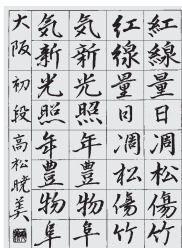 紅線量日凋松傷竹
紅線量日凋松傷竹
気新光照年豊物阜
気新光照年豊物阜
大阪 初段 高松暁美